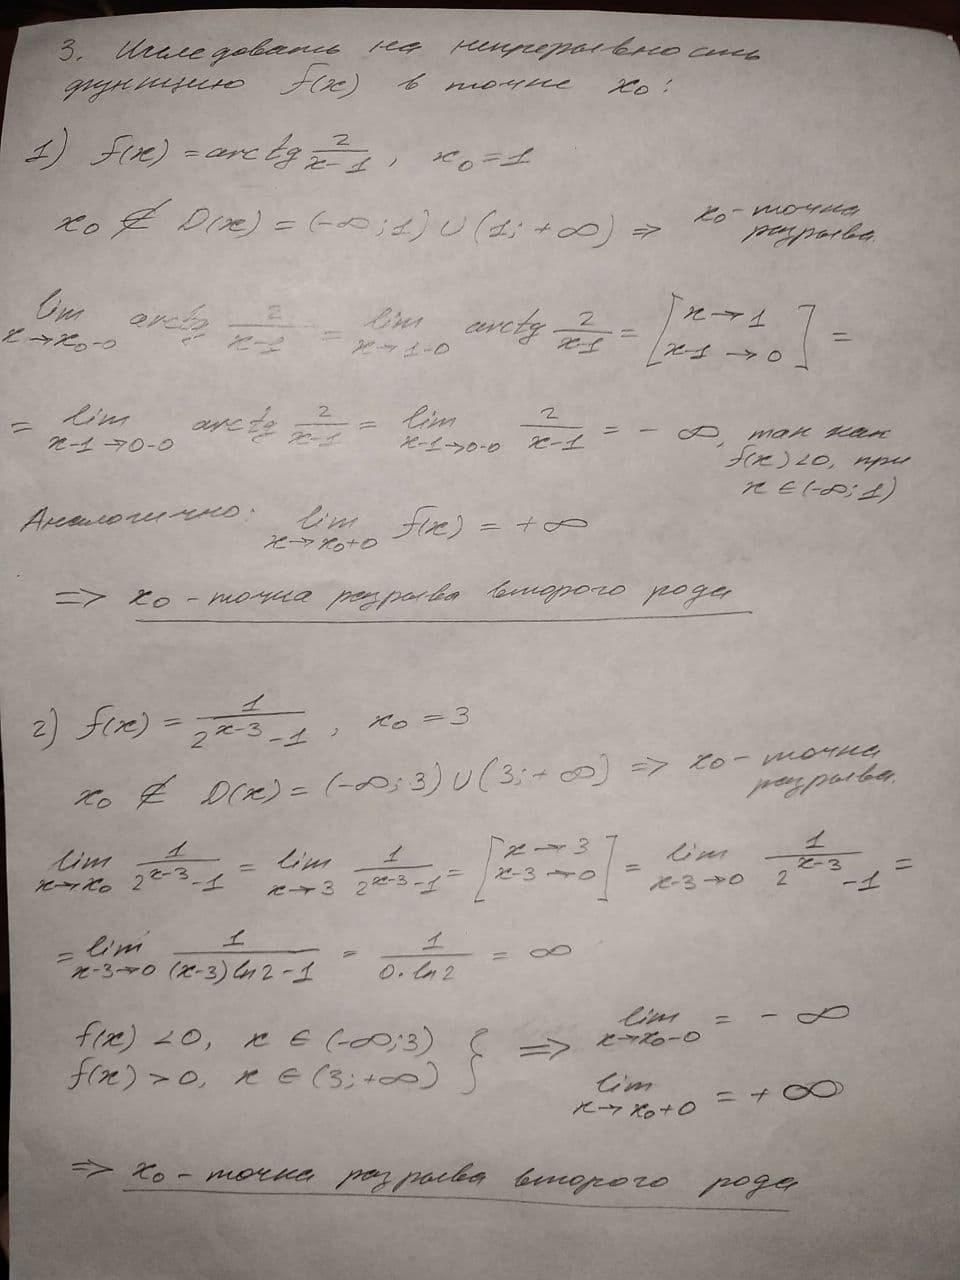 3. Исследовать на непрерывность
функцию f(x) в точке x₀:
1) f(x) = arctg 2/(x-1), x₀ = 1
x₀ ∉ D(x) = (-∞; 1) ∪ (1; +∞) ⇒ x₀ - точка разрыва.
lim x→x₀-0 arctg 2/(x-1) = lim x→1-0 arctg 2/(x-1) = [x → 1 x-1 → 0] =
= lim x-1→0-0 arctg 2/(x-1) = lim x-1→0-0 2/(x-1) = - ∞, так как f(x) < 0, при x ∈ (-∞; 1)
Аналогично: lim x→x₀+0 f(x) = +∞
⇒ x₀ - точка разрыва второго рода
2) f(x) = 1/(2^(x-3) - 1), x₀ = 3
x₀ ∉ D(x) = (-∞; 3) ∪ (3; +∞) ⇒ x₀ - точка разрыва.
lim x→x₀ 1/(2^(x-3) - 1) = lim x→3 1/(2^(x-3) - 1) = [x → 3 x-3 → 0] = lim x-3→0 1/(2^(x-3) - 1) =
= lim x-3→0 1/((x-3) ln2 - 1) = 1/(0 · ln2) = ∞
f(x) < 0, x ∈ (-∞; 3) } ⇒ lim x→x₀-0 = - ∞
f(x) > 0, x ∈ (3; +∞) } lim x→x₀+0 = + ∞
⇒ x₀ - точка разрыва второго рода